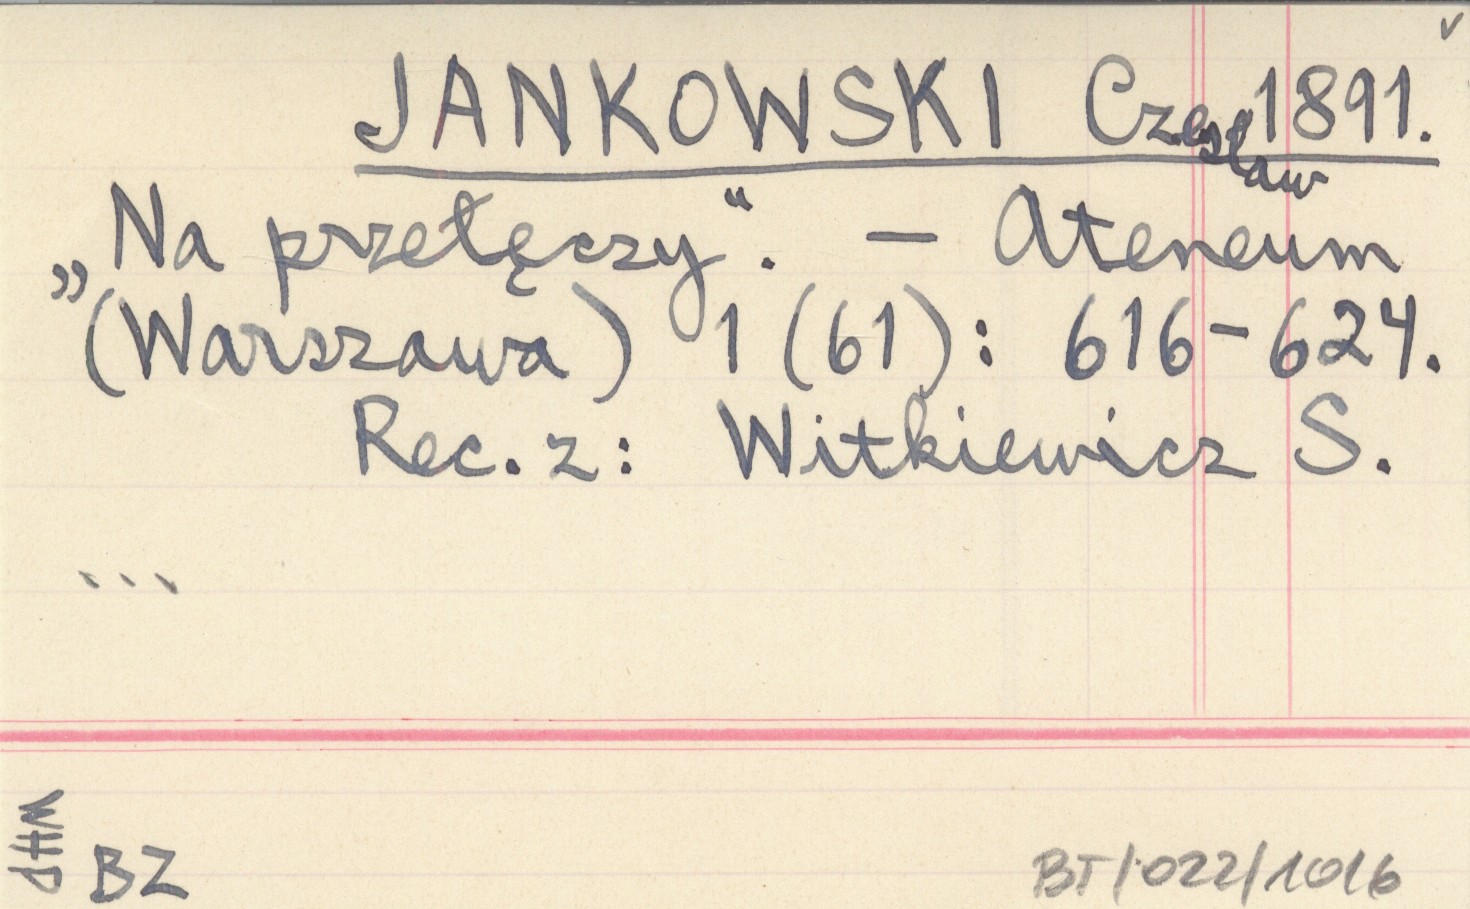 v
JANKOWSKI Czesław 1891.
„Na przełęczy". — Ateneum
(Warszawa) 1 (61): 616-624.
Rec. z: Witkiewicz S.
...
BZ
BT/022/1016